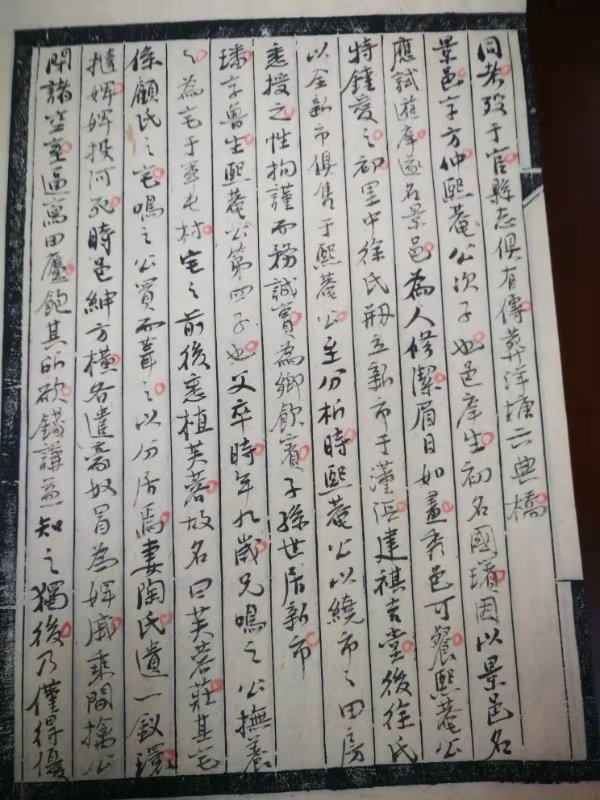 同弟歿于官縣志俱有傳葬洋塘六典橋
景邑字方仲熙菴公次子也邑庠生初名國璸因以景邑名
應試遊庠遂名景邑為人修潔眉目如畫秀色可餐熙菴公
特鍾愛之初里中徐氏剏立新市于漢浜建祺吉堂後徐氏
以全新市俱售于熙菴公至分析時熙菴公以繞市之田房
悉授之性拘謹而務誠實為鄉飲賓子孫世居新市
璠字魯生熙菴公第四子也父卒時年九歲兄鳴之公撫養
之為宅于軍屯村宅之前後悉植芙蓉故名曰芙蓉莊其宅
係顧氏之宅鳴之公買而葺之以分居焉妻陶氏遺一釵環
撻婢婢投河死時邑紳方橫各遣豪奴冒為婢戚乘間擒公
閉諸空室逼寫田廬飽其所欲錢謙益知之獨後乃僅得優